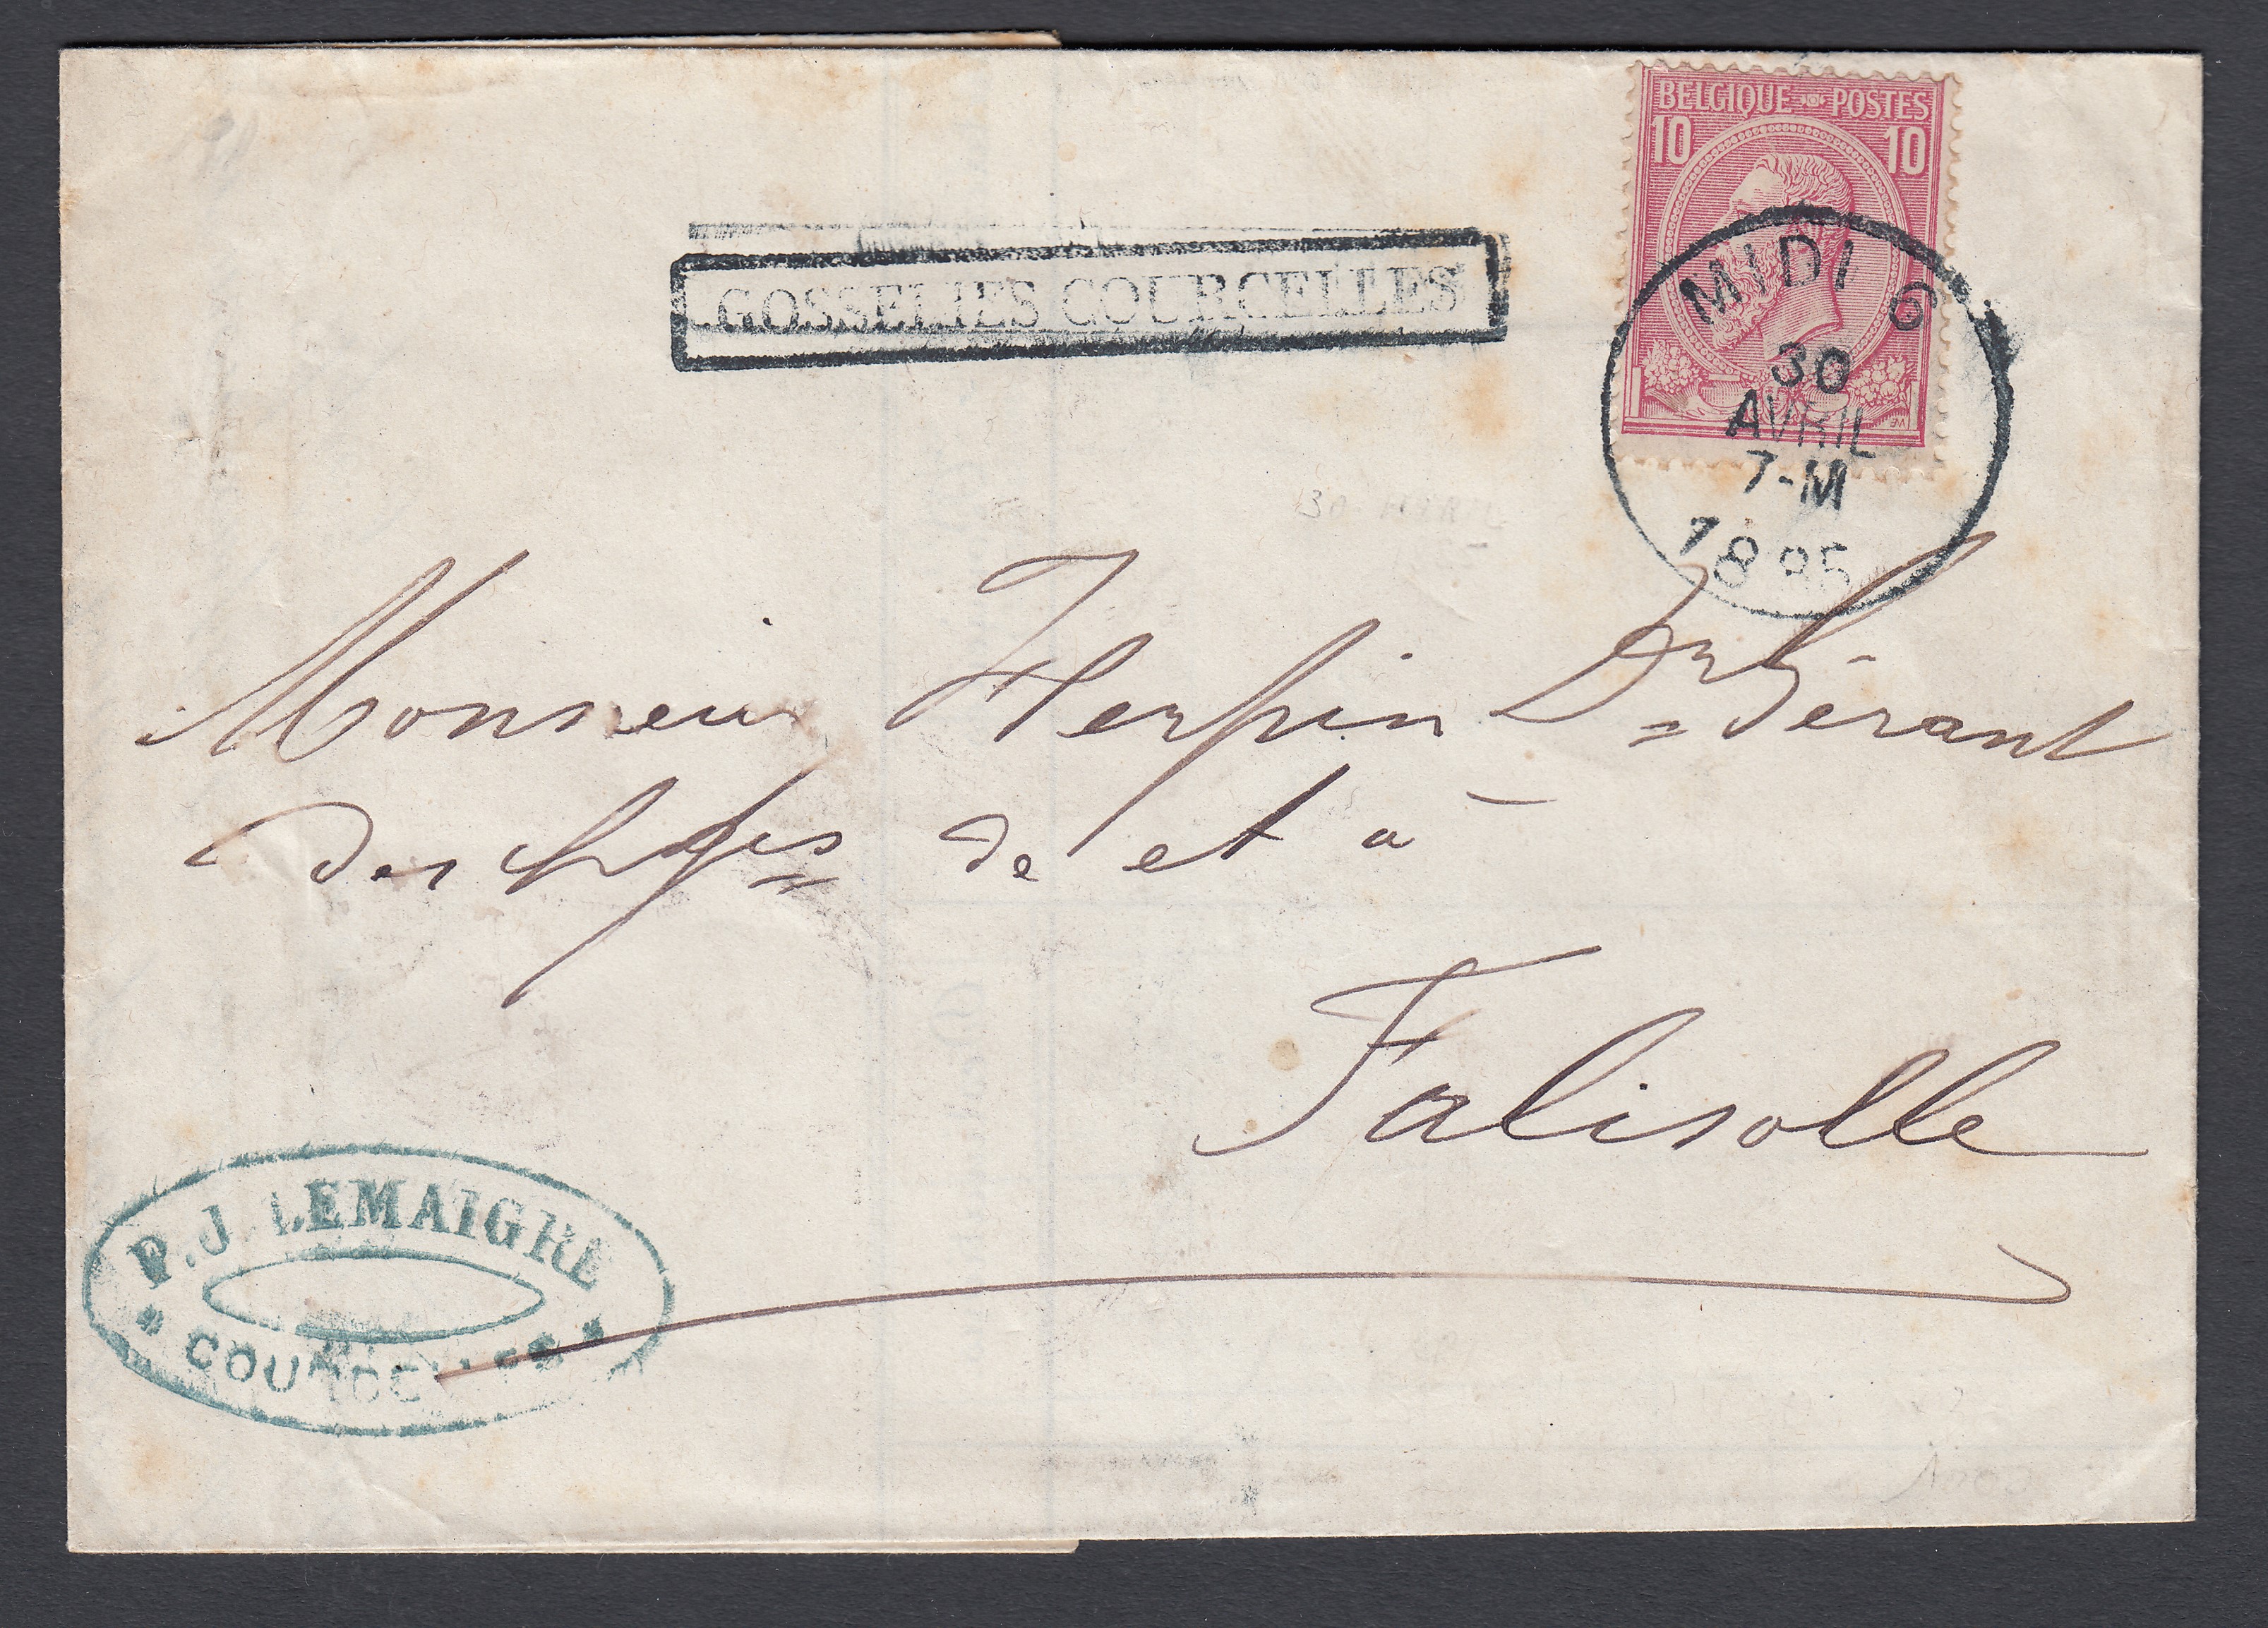 BELGIQUE POSTES
10 10
GOSSELIES COURCELLES
MIDI 6
30
AVRIL
7-M
1885
Monsieur Herpin Dr Gérant
des de et à
Falisolle
P. J. LEMAIGRE
* COURCELLES *